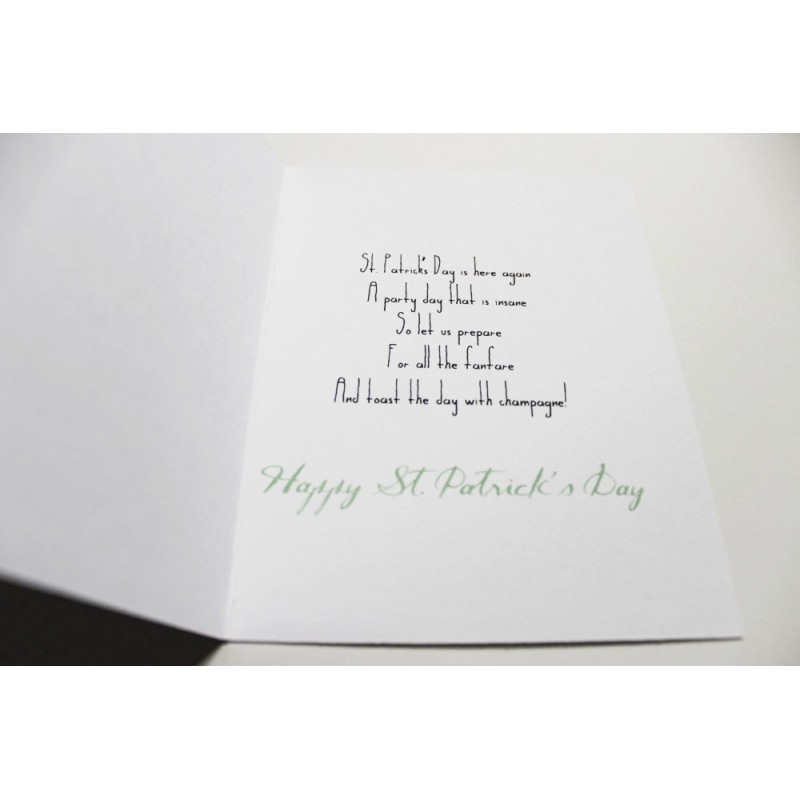 St. Patrick's Day is here again
A party day that is insane
So let us prepare
For all the fanfare
And toast the day with champagne!
Happy St. Patrick's Day